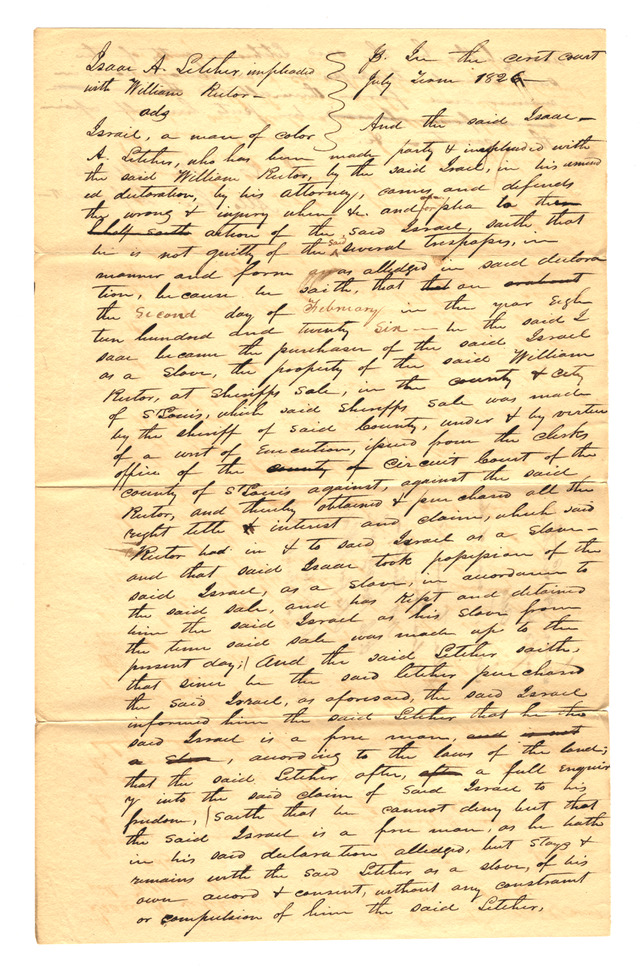 Isaac A. Letcher impleaded
with William Rector—
ads
Israel, a man of color
In the circt court
July Term 1826
And the said Isaac
A. Letcher, who has been made party & impleaded with
the said William Rector, by the said Israel, in his amend
ed declaration, by his attorney, comes and defends
the wrong & injury when &c. and for plea to the
half saith action of the said Israel, saith that
he is not guilty of the said several trespasses, in
manner and form as alledged in said declara
tion, because he saith, that on or about
the Second day of February in the year Eigh
teen hundred and twenty Six — he the said I
saac became the purchaser of the said Israel
as a Slave, the property of the said William
Rector, at Sheriffs Sale, in the county & City
of St Louis, which said Sheriffs Sale was made
by the sheriff of said County, under & by vertue
of a writ of Execution, issued from the clerks
office of the county of Circuit Court of the
county of St Louis against, against the said
Rector, and thereby obtained & purchased all the
right title & interest and claim, which said
Rector had in & to said Israel as a Slave—
and that said Isaac took possession of the
said Israel, as a Slave, in accordance to
the said sale, and has kept and detained
him the said Israel as his Slave from
the time said sale was made up to the
present day; And the said Letcher saith,
that since he the said Letcher purchased
the said Israel, as aforesaid, the said Israel
informed him the said Letcher that he the
said Israel is a free man, and is not
a slave, according to the laws of the land;
that the said Letcher after, after a full enquir
y into the said claim of Said Israel to his
freedom, saith that he cannot deny but that
the said Israel is a free man, as he hath
in his said declaration alledged, but stays &
remains with the said Letcher as a slave, of his
own accord & consent, without any constraint
or compulsion of him the said Letcher,